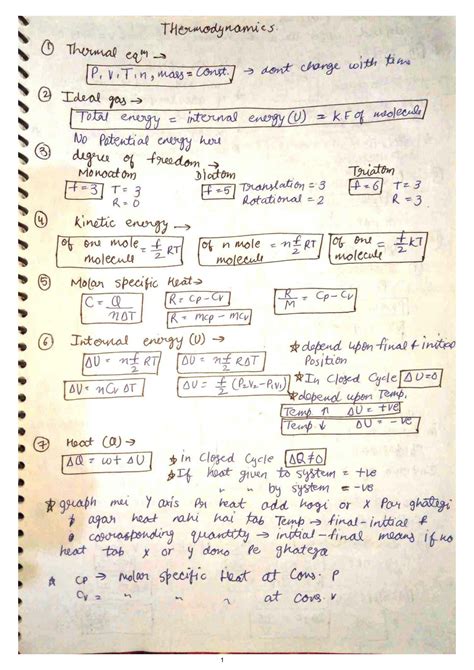 Thermodynamics
① Thermal eqm →
P, V, T, n, mass = Const. → dont change with time
② Ideal gas →
Total energy = internal energy (U) = K.E of molecule
No Potential energy here
③ degree of freedom →
Monoatom Diatom Triatom
f = 3 T = 3 f = 5 Translation = 3 f = 6 T = 3
R = 0 Rotational = 2 R = 3
④ Kinetic energy →
Of one mole molecule = f/2 RT Of n mole molecule = n f/2 RT Of one molecule = f/2 KT
⑤ Molar specific heat →
C = Q/nΔT R = Cp - Cv R/M = Cp - Cv
R = mcp - mcv
⑥ Internal energy (U) →
ΔU = n f/2 RT ΔU = n f/2 RΔT
ΔU = nCv ΔT ΔU = f/2 (P2V2 - P1V1)
☆ depend upon final & initial
Position
☆ In Closed Cycle ΔU = 0
☆ depend upon Temp.
Temp ↑ ΔU = +ve
Temp. ↓ ΔU = -ve
⑦ Heat (Q) →
ΔQ = w + ΔU
☆ in Closed Cycle ΔQ ≠ 0
☆ If heat given to system = +ve
" " by system = -ve
☆ graph mei Y axis Pr heat add hogi or X Par ghategi
agar heat nahi hai tab Temp → final - initial &
corresponding quantity → initial - final means if no
heat tab x or y dono Pe ghatega
☆ Cp → molar specific Heat at Cons. P
Cv = " " " at cons. v
1